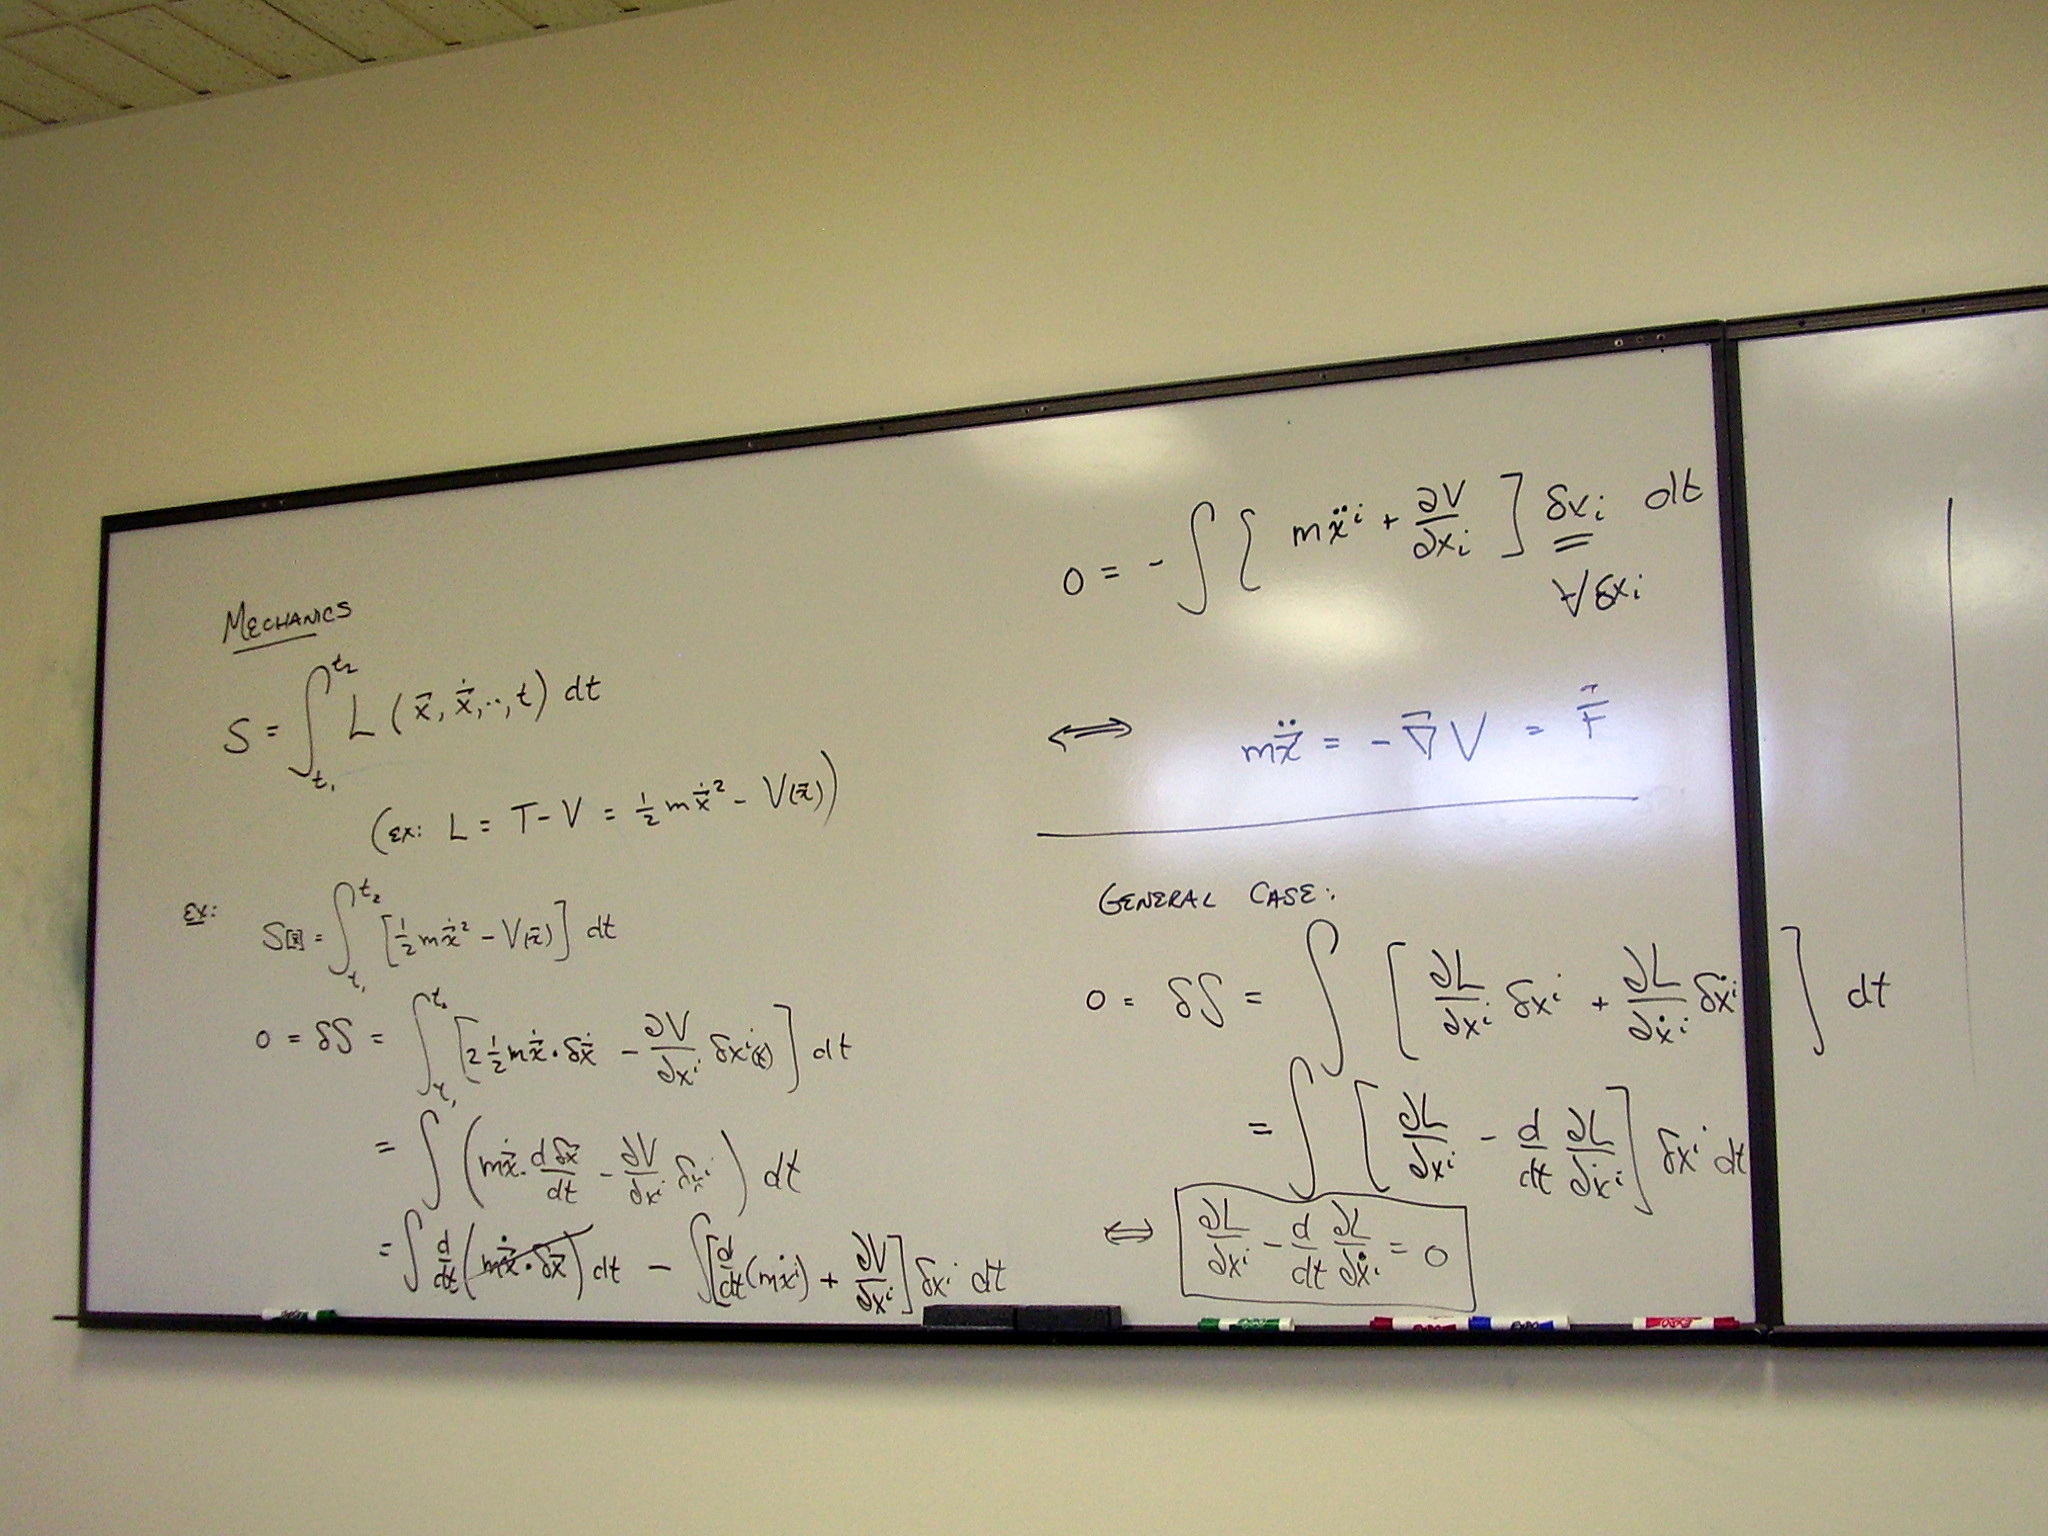 MECHANICS
S = ∫_{t₁}^{t₂} L (x⃗, ẋ⃗, .., t) dt
(EX: L = T - V = ½ m ẋ⃗² - V(x⃗))
EX: S[x⃗] = ∫_{t₁}^{t₂} [½ m ẋ⃗² - V(x⃗)] dt
0 = δS = ∫_{t₁}^{t₂} [2 ½ m ẋ⃗ · δẋ⃗ - ∂V/∂xⁱ δxⁱ(t)] dt
= ∫ (m ẋ⃗ · d δx⃗/dt - ∂V/∂xⁱ δxⁱ) dt
= ∫ d/dt (m ẋ⃗ · δx⃗) dt - ∫ [d/dt (m ẋⁱ) + ∂V/∂xⁱ] δxⁱ dt
0 = - ∫ { m ẍⁱ + ∂V/∂xᵢ ] δxᵢ dt
∀ δxᵢ
⟺ m ẍ⃗ = - ∇⃗ V = F⃗
GENERAL CASE:
0 = δS = ∫ [ ∂L/∂xⁱ δxⁱ + ∂L/∂ẋⁱ δẋⁱ ] dt
= ∫ [ ∂L/∂xⁱ - d/dt ∂L/∂ẋⁱ ] δxⁱ dt
⟺ ∂L/∂xⁱ - d/dt ∂L/∂ẋⁱ = 0
EXPO